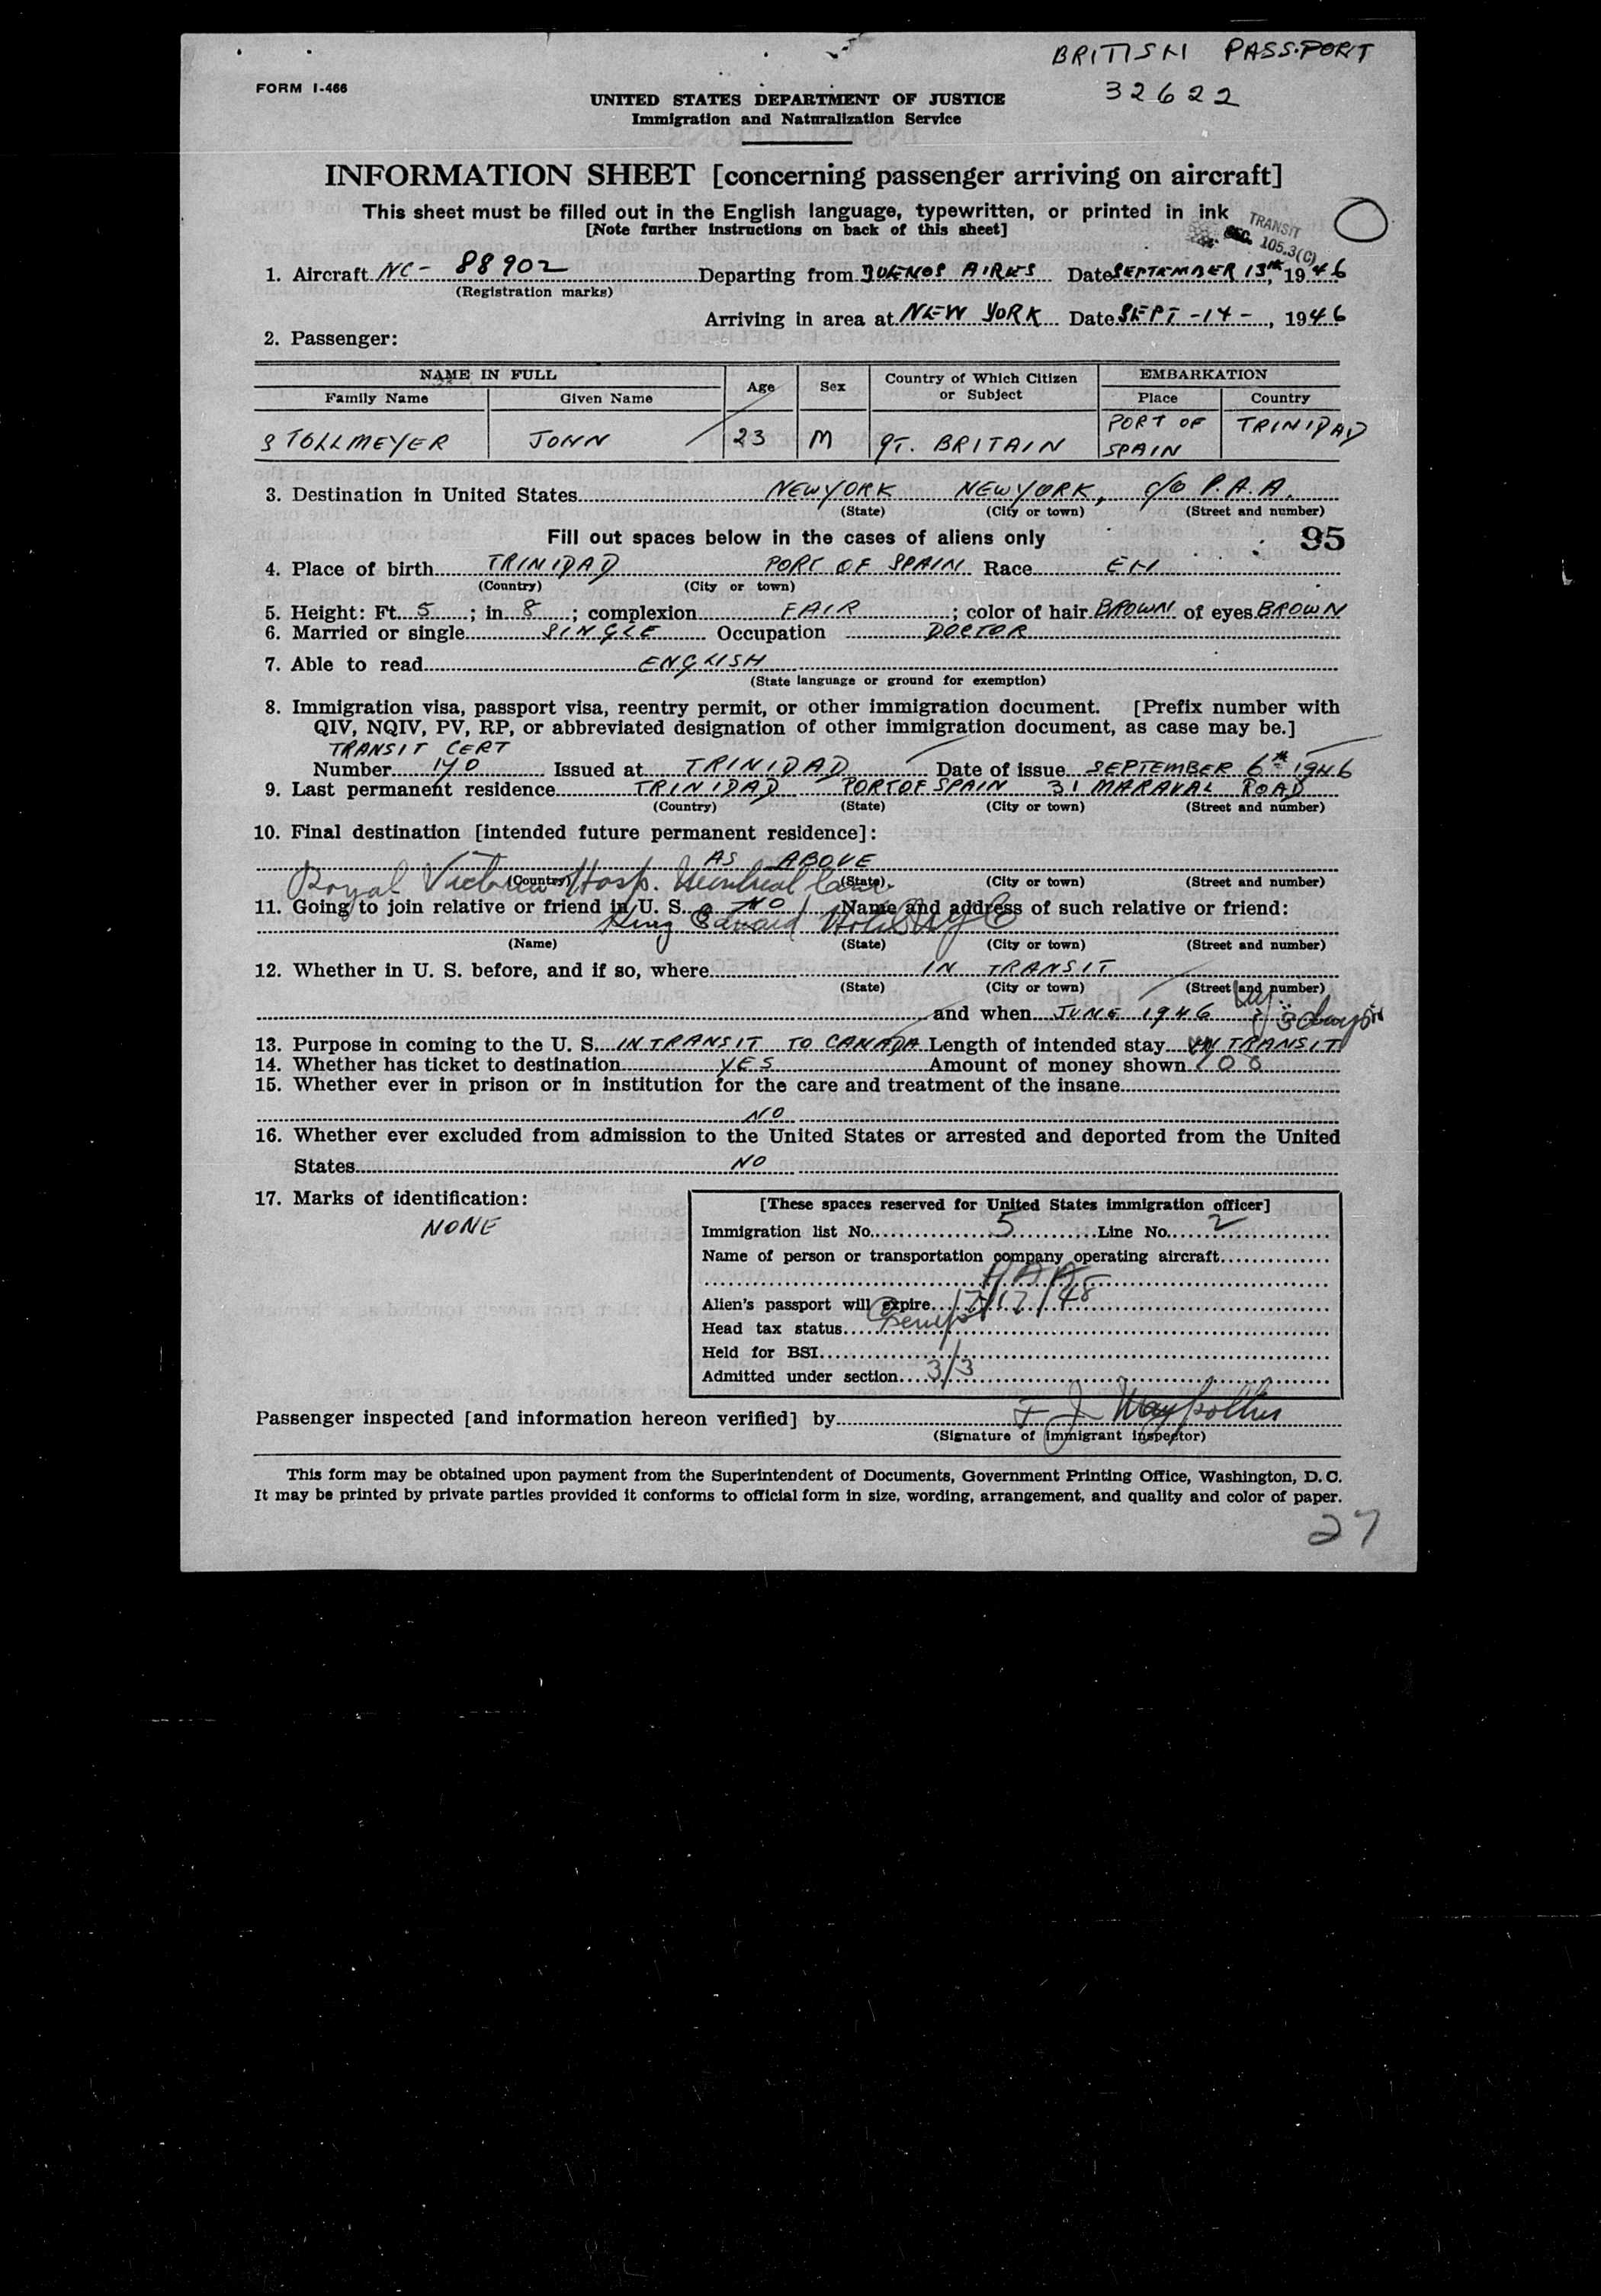 BRITISH PASSPORT
32622
FORM I-466
UNITED STATES DEPARTMENT OF JUSTICE
Immigration and Naturalization Service
INFORMATION SHEET [concerning passenger arriving on aircraft]
This sheet must be filled out in the English language, typewritten, or printed in ink
[Note further instructions on back of this sheet]
TRANSIT
SEC. 105.3(C)
1. Aircraft NC- 88902 Departing from BUENOS AIRES Date SEPTEMBER 13th, 1946
(Registration marks)
Arriving in area at NEW YORK Date SEPT -14-, 1946
2. Passenger:
NAME IN FULL Age Sex Country of Which Citizen or Subject EMBARKATION
Family Name Given Name Place Country
STOLLMEYER JOHN 23 M GT. BRITAIN PORT OF SPAIN TRINIDAD
3. Destination in United States NEW YORK NEW YORK, c/o P.A.A.
(State) (City or town) (Street and number)
Fill out spaces below in the cases of aliens only 95
4. Place of birth TRINIDAD PORT OF SPAIN Race EH
(Country) (City or town)
5. Height: Ft. 5; in 8; complexion FAIR; color of hair BROWN of eyes BROWN
6. Married or single SINGLE Occupation DOCTOR
7. Able to read ENGLISH
(State language or ground for exemption)
8. Immigration visa, passport visa, reentry permit, or other immigration document. [Prefix number with
QIV, NQIV, PV, RP, or abbreviated designation of other immigration document, as case may be.]
TRANSIT CERT
Number 140 Issued at TRINIDAD Date of issue SEPTEMBER 6th 1946
9. Last permanent residence TRINIDAD PORT OF SPAIN 31 MARAVAL ROAD
(Country) (State) (City or town) (Street and number)
10. Final destination [intended future permanent residence]:
AS ABOVE
Royal Victoria Hosp. Montreal Can.
(Country) (State) (City or town) (Street and number)
11. Going to join relative or friend in U. S. NO Name and address of such relative or friend:
King Edward Hotel NYC
(Name) (State) (City or town) (Street and number)
12. Whether in U. S. before, and if so, where IN TRANSIT
(State) (City or town) (Street and number)
and when JUNE 1946 3 days
13. Purpose in coming to the U. S. IN TRANSIT TO CANADA Length of intended stay IN TRANSIT
14. Whether has ticket to destination YES Amount of money shown
15. Whether ever in prison or in institution for the care and treatment of the insane
NO
16. Whether ever excluded from admission to the United States or arrested and deported from the United
States NO
17. Marks of identification:
NONE
[These spaces reserved for United States immigration officer]
Immigration list No. 5 Line No. 2
Name of person or transportation company operating aircraft
PAA
Alien's passport will expire 7/17/48
Head tax status Exempt
Held for BSI
Admitted under section 3/3
Passenger inspected [and information hereon verified] by
(Signature of immigrant inspector)
This form may be obtained upon payment from the Superintendent of Documents, Government Printing Office, Washington, D. C.
It may be printed by private parties provided it conforms to official form in size, wording, arrangement, and quality and color of paper.
27